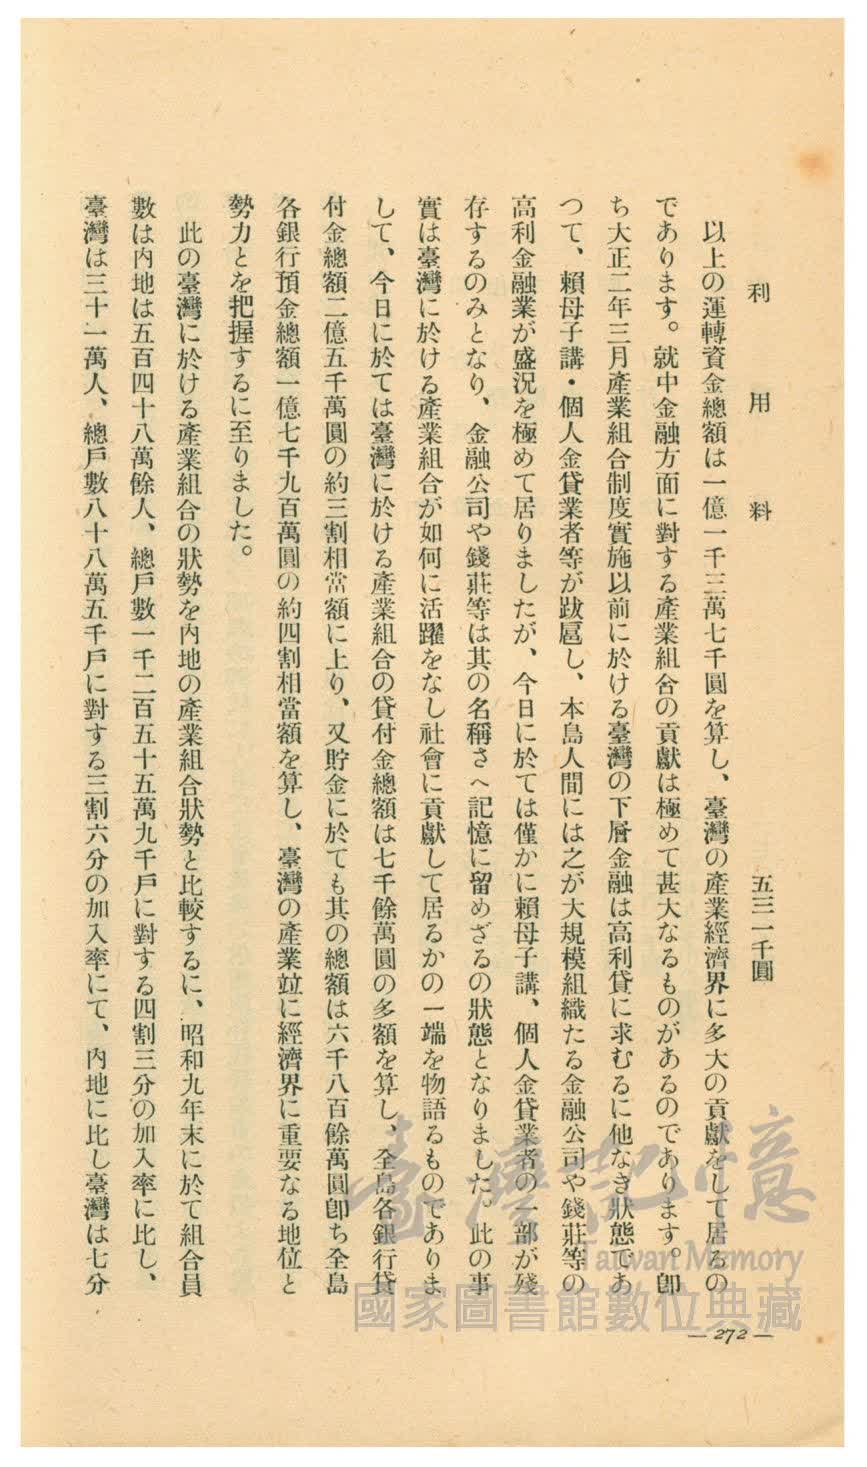 利用料 五三一千圓
以上の運轉資金總額は一億一千三萬七千圓を算し、臺灣の產業經濟界に多大の貢獻をして居るの
であります。就中金融方面に對する產業組合の貢獻は極めて甚大なるものがあるのであります。卽
ち大正二年三月產業組合制度實施以前に於ける臺灣の下層金融は高利貸に求むるに他なき狀態であ
つて、賴母子講・個人金貸業者等が跋扈し、本島人間には之が大規模組織たる金融公司や錢莊等の
高利金融業が盛況を極めて居りましたが、今日に於ては僅かに賴母子講、個人金貸業者の一部が殘
存するのみとなり、金融公司や錢莊等は其の名稱さへ記憶に留めざるの狀態となりました。此の事
實は臺灣に於ける產業組合が如何に活躍をなし社會に貢獻して居るかの一端を物語るものでありま
して、今日に於ては臺灣に於ける產業組合の貸付金總額は七千餘萬圓の多額を算し、全島各銀行貸
付金總額二億五千萬圓の約三割相當額に上り、又貯金に於ても其の總額は六千八百餘萬圓卽ち全島
各銀行預金總額一億七千九百萬圓の約四割相當額を算し、臺灣の產業竝に經濟界に重要なる地位と
勢力とを把握するに至りました。
此の臺灣に於ける產業組合の狀勢を內地の產業組合狀勢と比較するに、昭和九年末に於て組合員
數は內地は五百四十八萬餘人、總戶數一千二百五十五萬九千戶に對する四割三分の加入率に比し、
臺灣は三十一萬人、總戶數八十八萬五千戶に對する三割六分の加入率にて、內地に比し臺灣は七分
— 272 —
臺灣記憶
Taiwan Memory
國家圖書館數位典藏